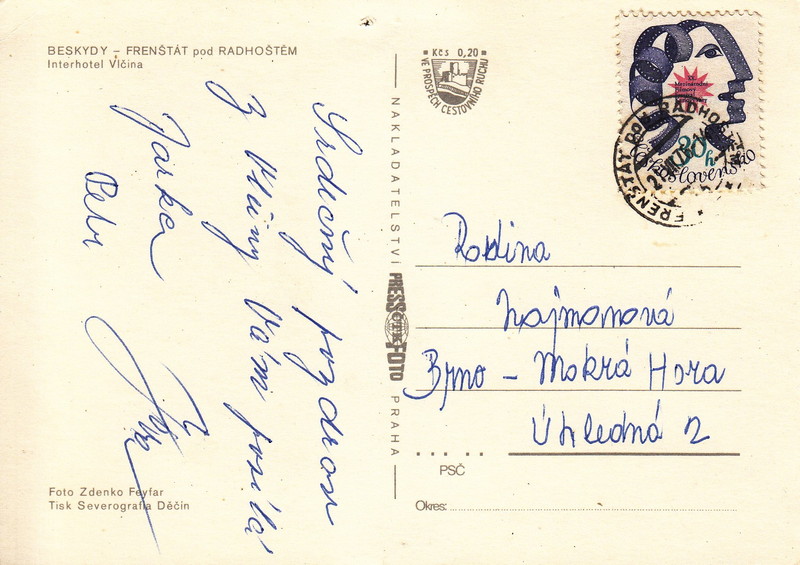 BESKYDY – FRENŠTÁT pod RADHOŠTĚM
Interhotel Vlčina
Srdečný pozdrav
z Vlčiny Vám posílá
Jarka
Petr
Foto Zdenko Feyfar
Tisk Severografia Děčín
Kčs 0,20
VE PROSPĚCH CESTOVNÍHO RUCHU
NAKLADATELSTVÍ PRESSFOTO PRAHA
ČTK
XX.
Mezinárodní
filmový
festival
30h
Československo
FRENŠTÁT POD RADHOŠTĚM
Rodina
Najmonová
Brno – Mokrá Hora
Úhledná 2
PSČ
Okres: